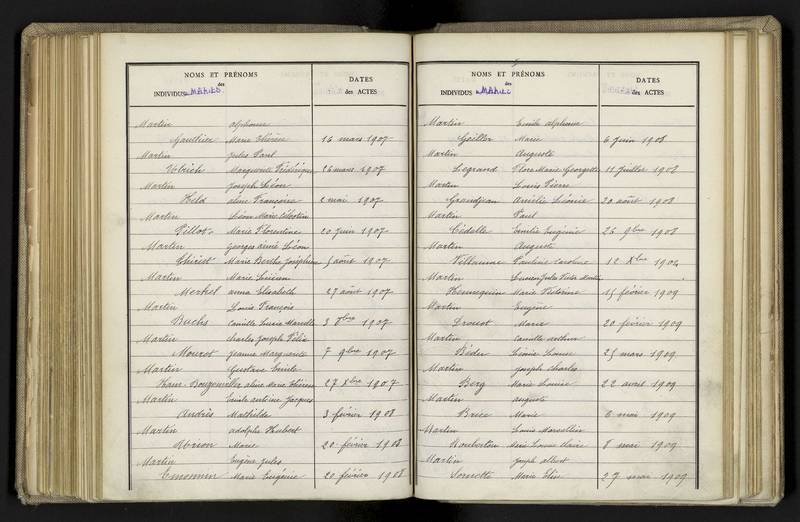 NOMS ET PRÉNOMS
des
INDIVIDUS MARIÉS
DATES
des ACTES
Martin alphonse
Gaulthier Marie Thérèse 16 mars 1907
Martin Jules Paul
Ulrich Marguerite Frédérique 26 mars 1907
Martin Joseph Léon
Held aline Françoise 2 mai 1907
Martin Léon Marie Célestin
Pillot Marie Florentine 20 juin 1907
Martin georges aimé Léon
Thiriet Marie Berthe Joséphine 5 août 1907
Martin Marie Lucien
Merkel anna Elisabeth 27 août 1907
Martin Louis François
Buchs Camille Lucie Marcelle 3 8bre 1907
Martin Charles Joseph Félix
Mourot Jeanne Marguerite 7 9bre 1907
Martin Gustave Emile
aline Marie Thérèse 27 Xbre 1907
Martin Emile antoine Jacques
Andrès Mathilde 3 février 1908
Martin adolphe Hubert
Abrion Marie 20 février 1908
Martin Eugène Jules
Emonnin Marie Eugénie 20 février 1908
NOMS ET PRÉNOMS
des
INDIVIDUS MARIÉS
DATES
des ACTES
Martin Emile alphonse
Goëller Marie 6 Juin 1908
Martin Auguste
Legrand Flore Marie Georgette 11 Juillet 1908
Martin Louis Pierre
Grandjean Amélie Léonie 20 août 1908
Martin Paul
Cédelle Emilie Eugénie 26 9bre 1908
Martin Auguste
Villaume Pauline Caroline 12 Xbre 1908
Martin Lucien Jules Victor
Hennequin Marie Victorine 15 février 1909
Martin Eugène
Drouot Marie 20 février 1909
Martin Camille arthur
Bédin Léonie Louise 25 mars 1909
Martin Joseph Charles
Berg Marie Louise 22 avril 1909
Martin auguste
Brice Marie 6 mai 1909
Martin Louis Marcellin
Marie Louise Claire 8 mai 1909
Martin Joseph albert
Marie Elise 27 mai 1909